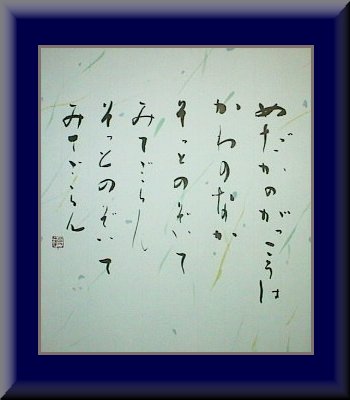 めだかのがっこうは
かわのなか
そっとのぞいて
みてごらん
そっとのぞいて
みてごらん